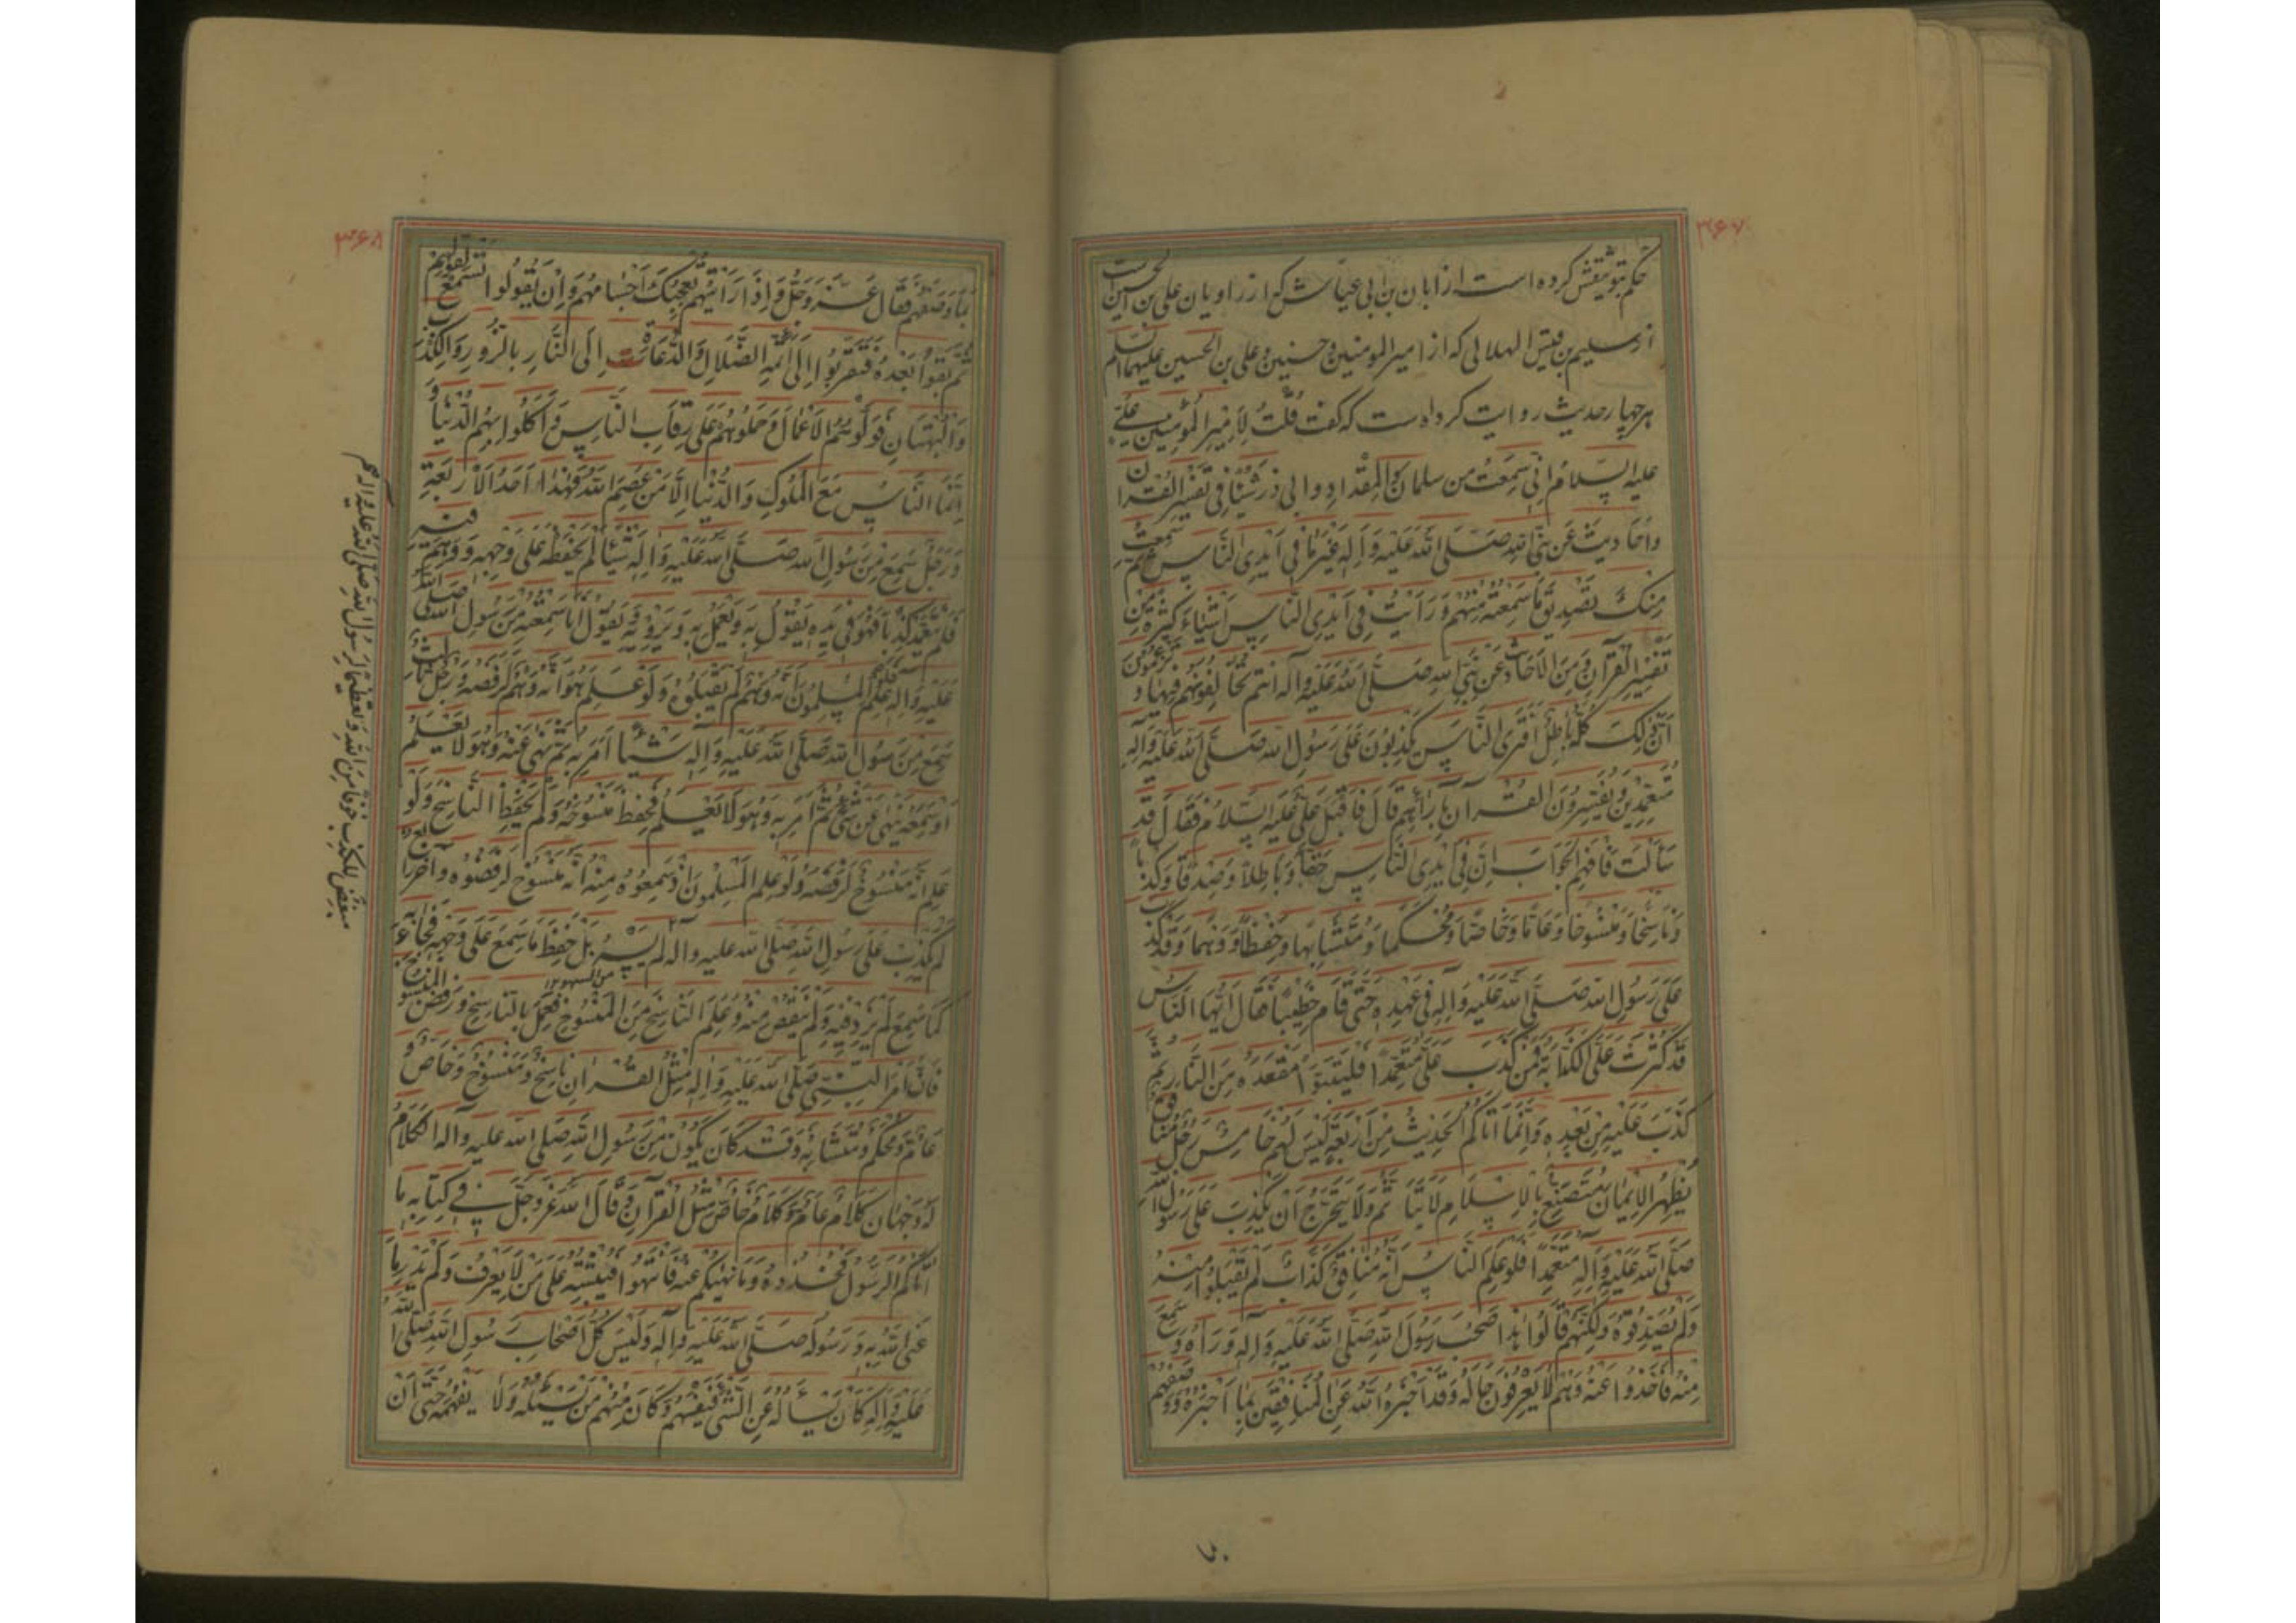 ۳۶۷
حکم بتوثیقش کرده است از ابان بن ابی عیاش که از راویان علی بن الحسین است
از سلیم بن قیس الهلالی که از امیر المومنین و حسنین و علی بن الحسین علیهم السلم
هر چهار حدیث روایت کرده است که گفت قُلتُ لِاَمِیرِ المُؤمِنِینَ عَلِیٍّ
علیه السلام اِنّی سَمِعتُ من سلمان وَ المِقدادِ و ابی ذر شَیئًا فی تَفسیرِ القُرانِ
وَ اَحَادیثَ عَن نَبِیِّ اللهِ صَلَّی اللهُ عَلَیهِ وَ آلِهِ غَیرَ مَا فِی اَیدِی النَّاسِ ثم سَمِعتُ
مِنکَ تَصدِیقَ مَا سَمِعتُهُ مِنهُم وَ رَاَیتُ فِی اَیدِی النَّاسِ اَشیَاءَ کَثِیرَةً مِن
تَفسِیرِ القُرآنِ وَ مِنَ الاَحَادِیثِ عَن نَبِیِّ اللهِ صَلَّی اللهُ عَلَیهِ وَ آلِهِ انتم تُخَالِفُونَهُم فِیهَا وَ تَزعُمُونَ
اَنَّ ذلِکَ کُلَّهُ بَاطِلٌ اَفَتَرَی النَّاسَ یَکذِبُونَ عَلَی رَسُولِ اللهِ صَلَّی اللهُ عَلَیهِ وَ آلِهِ
مُتَعَمِّدِینَ وَ یُفَسِّرُونَ القُرآنَ بِآرَائِهِم قَالَ فَاَقبَلَ عَلِیٌّ عَلَیهِ السَّلَامُ فَقَالَ قَد
سَاَلتَ فَافهَمِ الجَوَابَ اِنَّ فِی اَیدِی النَّاسِ حَقًّا وَ بَاطِلًا وَ صِدقًا وَ کَذِبًا
وَ نَاسِخًا وَ مَنسُوخًا وَ عَامًّا وَ خَاصًّا وَ مُحکَمًا وَ مُتَشَابِهًا وَ حِفظًا وَ وَهمًا وَ قَد کُذِبَ
عَلَی رَسُولِ اللهِ صَلَّی اللهُ عَلَیهِ وَ آلِهِ فِی عَهدِهِ حَتَّی قَامَ خَطِیبًا فَقَالَ اَیُّهَا النَّاسُ
قَد کَثُرَت عَلَیَّ الکَذَّابَةُ فَمَن کَذَبَ عَلَیَّ مُتَعَمِّدًا فَلیَتَبَوَّا مَقعَدَهُ مِنَ النَّارِ ثُمَّ
کُذِبَ عَلَیهِ مِن بَعدِهِ وَ اِنَّمَا اَتَاکُمُ الحَدِیثُ مِن اَربَعَةٍ لَیسَ لَهُم خَامِسٌ رَجُلٍ مُنَافِقٍ
یُظهِرُ الاِیمَانَ مُتَصَنِّعٍ بِالاِسلَامِ لَا یَتَاَثَّمُ وَ لَا یَتَحَرَّجُ اَن یَکذِبَ عَلَی رَسُولِ اللهِ
صَلَّی اللهُ عَلَیهِ وَ آلِهِ مُتَعَمِّدًا فَلَو عَلِمَ النَّاسُ اَنَّهُ مُنَافِقٌ کَذَّابٌ لَم یَقبَلُوا مِنهُ
وَ لَم یُصَدِّقُوهُ وَ لکِنَّهُم قَالُوا هذَا صَحِبَ رَسُولَ اللهِ صَلَّی اللهُ عَلَیهِ وَ آلِهِ وَ رَآهُ وَ سَمِعَ
مِنهُ فَاَخَذُوا عَنهُ وَ هُم لَا یَعرِفُونَ حَالَهُ وَ قَد اَخبَرَهُ اللهُ عَنِ المُنَافِقِینَ بِمَا اَخبَرَهُ وَ وَصَفَهُم
۳۶۸
بِمَا وَصَفَهُم فَقَالَ عَزَّ وَ جَلَّ وَ اِذَا رَاَیتَهُم تُعجِبُکَ اَجسَامُهُم وَ اِن یَقُولُوا تَسمَع لِقَولِهِم
ثُمَّ بَقُوا بَعدَهُ فَتَقَرَّبُوا اِلَی اَئِمَّةِ الضَّلَالِ وَ الدُّعَاةِ اِلَی النَّارِ بِالزُّورِ وَ الکَذِبِ
وَ البُهتَانِ فَوَلَّوهُمُ الاَعمَالَ وَ حَمَلُوهُم عَلَی رِقَابِ النَّاسِ وَ اَکَلُوا بِهِمُ الدُّنیَا وَ
اِنَّمَا النَّاسُ مَعَ المُلُوکِ وَ الدُّنیَا اِلَّا مَن عَصَمَ اللهُ فَهذَا اَحَدُ الاَربَعَةِ
وَ رَجُلٍ سَمِعَ مِن رَسُولِ اللهِ صَلَّی اللهُ عَلَیهِ وَ آلِهِ شَیئًا لَم یَحفَظهُ عَلَی وَجهِهِ وَ وَهِمَ فِیهِ
فَلَم یَتَعَمَّد کَذِبًا فَهُوَ فِی یَدِهِ یَقُولُ بِهِ وَ یَعمَلُ بِهِ وَ یَروِیهِ وَ یَقُولُ اَنَا سَمِعتُهُ مِن رَسُولِ اللهِ صَلَّی اللهُ
عَلَیهِ وَ آلِهِ فَلَو عَلِمَ المُسلِمُونَ اَنَّهُ وَهِمَ لَم یَقبَلُوهُ وَ لَو عَلِمَ هُوَ اَنَّهُ وَهِمَ لَرَفَضَهُ وَ رَجُلٍ ثَالِثٍ
سَمِعَ مِن رَسُولِ اللهِ صَلَّی اللهُ عَلَیهِ وَ آلِهِ شَیئًا اَمَرَ بِهِ ثُمَّ نَهَی عَنهُ وَ هُوَ لَا یَعلَمُ
اَو سَمِعَهُ یَنهَی عَن شَیءٍ ثُمَّ اَمَرَ بِهِ وَ هُوَ لَا یَعلَمُ فَحَفِظَ مَنسُوخَهُ وَ لَم یَحفَظِ النَّاسِخَ وَ لَو
عَلِمَ اَنَّهُ مَنسُوخٌ لَرَفَضَهُ وَ لَو عَلِمَ المُسلِمُونَ اِذ سَمِعُوهُ مِنهُ اَنَّهُ مَنسُوخٌ لَرَفَضُوهُ وَ آخَرَ رَابِعٍ
لَم یَکذِب عَلَی رَسُولِ اللهِ صَلَّی اللهُ علیه و آله لَم یَنسَهُ بَل حَفِظَ مَا سَمِعَ عَلَی وَجهِهِ فَجَاءَ بِهِ
کَمَا سَمِعَ لَم یَزِد فِیهِ وَ لَم یَنقُص مِنهُ وَ عَلِمَ النَّاسِخَ مِنَ المَنسُوخِ فَعَمِلَ بِالنَّاسِخِ وَ رَفَضَ المَنسُوخَ
فَاِنَّ اَمرَ النَّبِیِّ صَلَّی اللهُ عَلَیهِ وَ آلِهِ مِثلُ القُرانِ نَاسِخٌ وَ مَنسُوخٌ وَ خَاصٌّ وَ
عَامٌّ وَ مُحکَمٌ وَ مُتَشَابِهٌ وَ قَد کَانَ یَکُونُ مِن رَسُولِ اللهِ صَلی الله علیه و آله الکَلَامُ
لَهُ وَجهَانِ کَلَامٌ عَامٌّ وَ کَلَامٌ خَاصٌّ مِثلُ القُرآنِ وَ قَالَ اللهُ عَزَّ وَ جَلَّ فِی کِتَابِهِ مَا
اَتَاکُمُ الرَّسُولُ فَخُذُوهُ وَ مَا نَهَیکُم عَنهُ فَانتَهُوا فَیَشتَبِهُ عَلَی مَن لَا یَعرِفُ وَ لَم یَدرِ مَا
عَنَی اللهُ بِهِ وَ رَسُولُهُ صَلَّی اللهُ عَلَیهِ وَ آلِهِ وَ لَیسَ کُلُّ اَصحَابِ رَسُولِ اللهِ صَلَّی اللهُ
عَلَیهِ وَ آلِهِ کَانَ یَسأَلُهُ عَنِ الشَّیءِ فَیَفهَمُ وَ کَانَ مِنهُم مَن یَسئَلُهُ وَ لَا یَستَفهِمُهُ حَتَّی اَن
مبغض للکذب خوفا من الله و تعظیما لرسول الله صلی الله علیه و اله